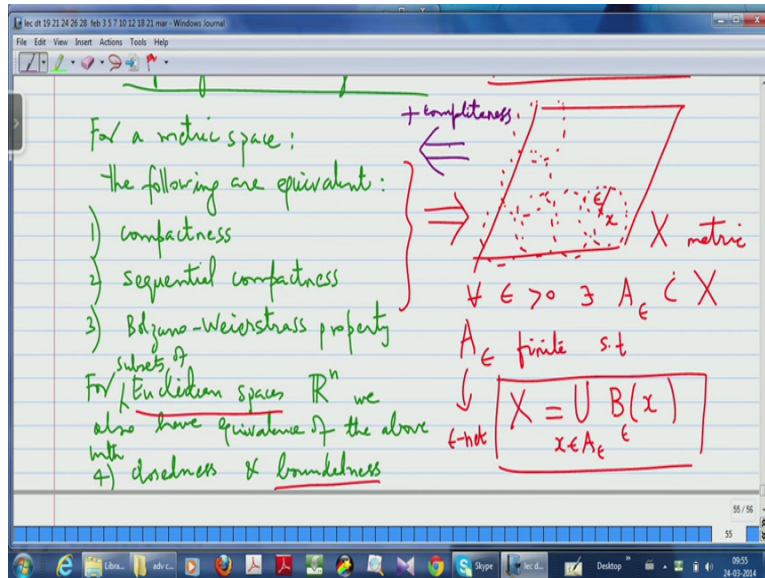 lec dt 19 21 24 26 28 feb 3 5 7 10 12 18 21 mar - Windows Journal
File Edit View Insert Actions Tools Help
For a metric space:
the following are equivalent:
1) compactness
2) sequential compactness
3) Bolzano-Weierstrass property
subsets of
For Euclidean spaces ℝⁿ we
also have equivalence of the above
with
4) closedness & boundedness
+ completeness
⇐
⇒
ε
x
X metric
∀ ε > 0 ∃ A_ε ⊂ X
A_ε finite s.t
↓
ε-net
X = ∪ B_ε(x)
x∈A_ε
55 / 56
55
Libra...
adv c...
Skype
lec d...
Desktop
09:55
24-03-2014